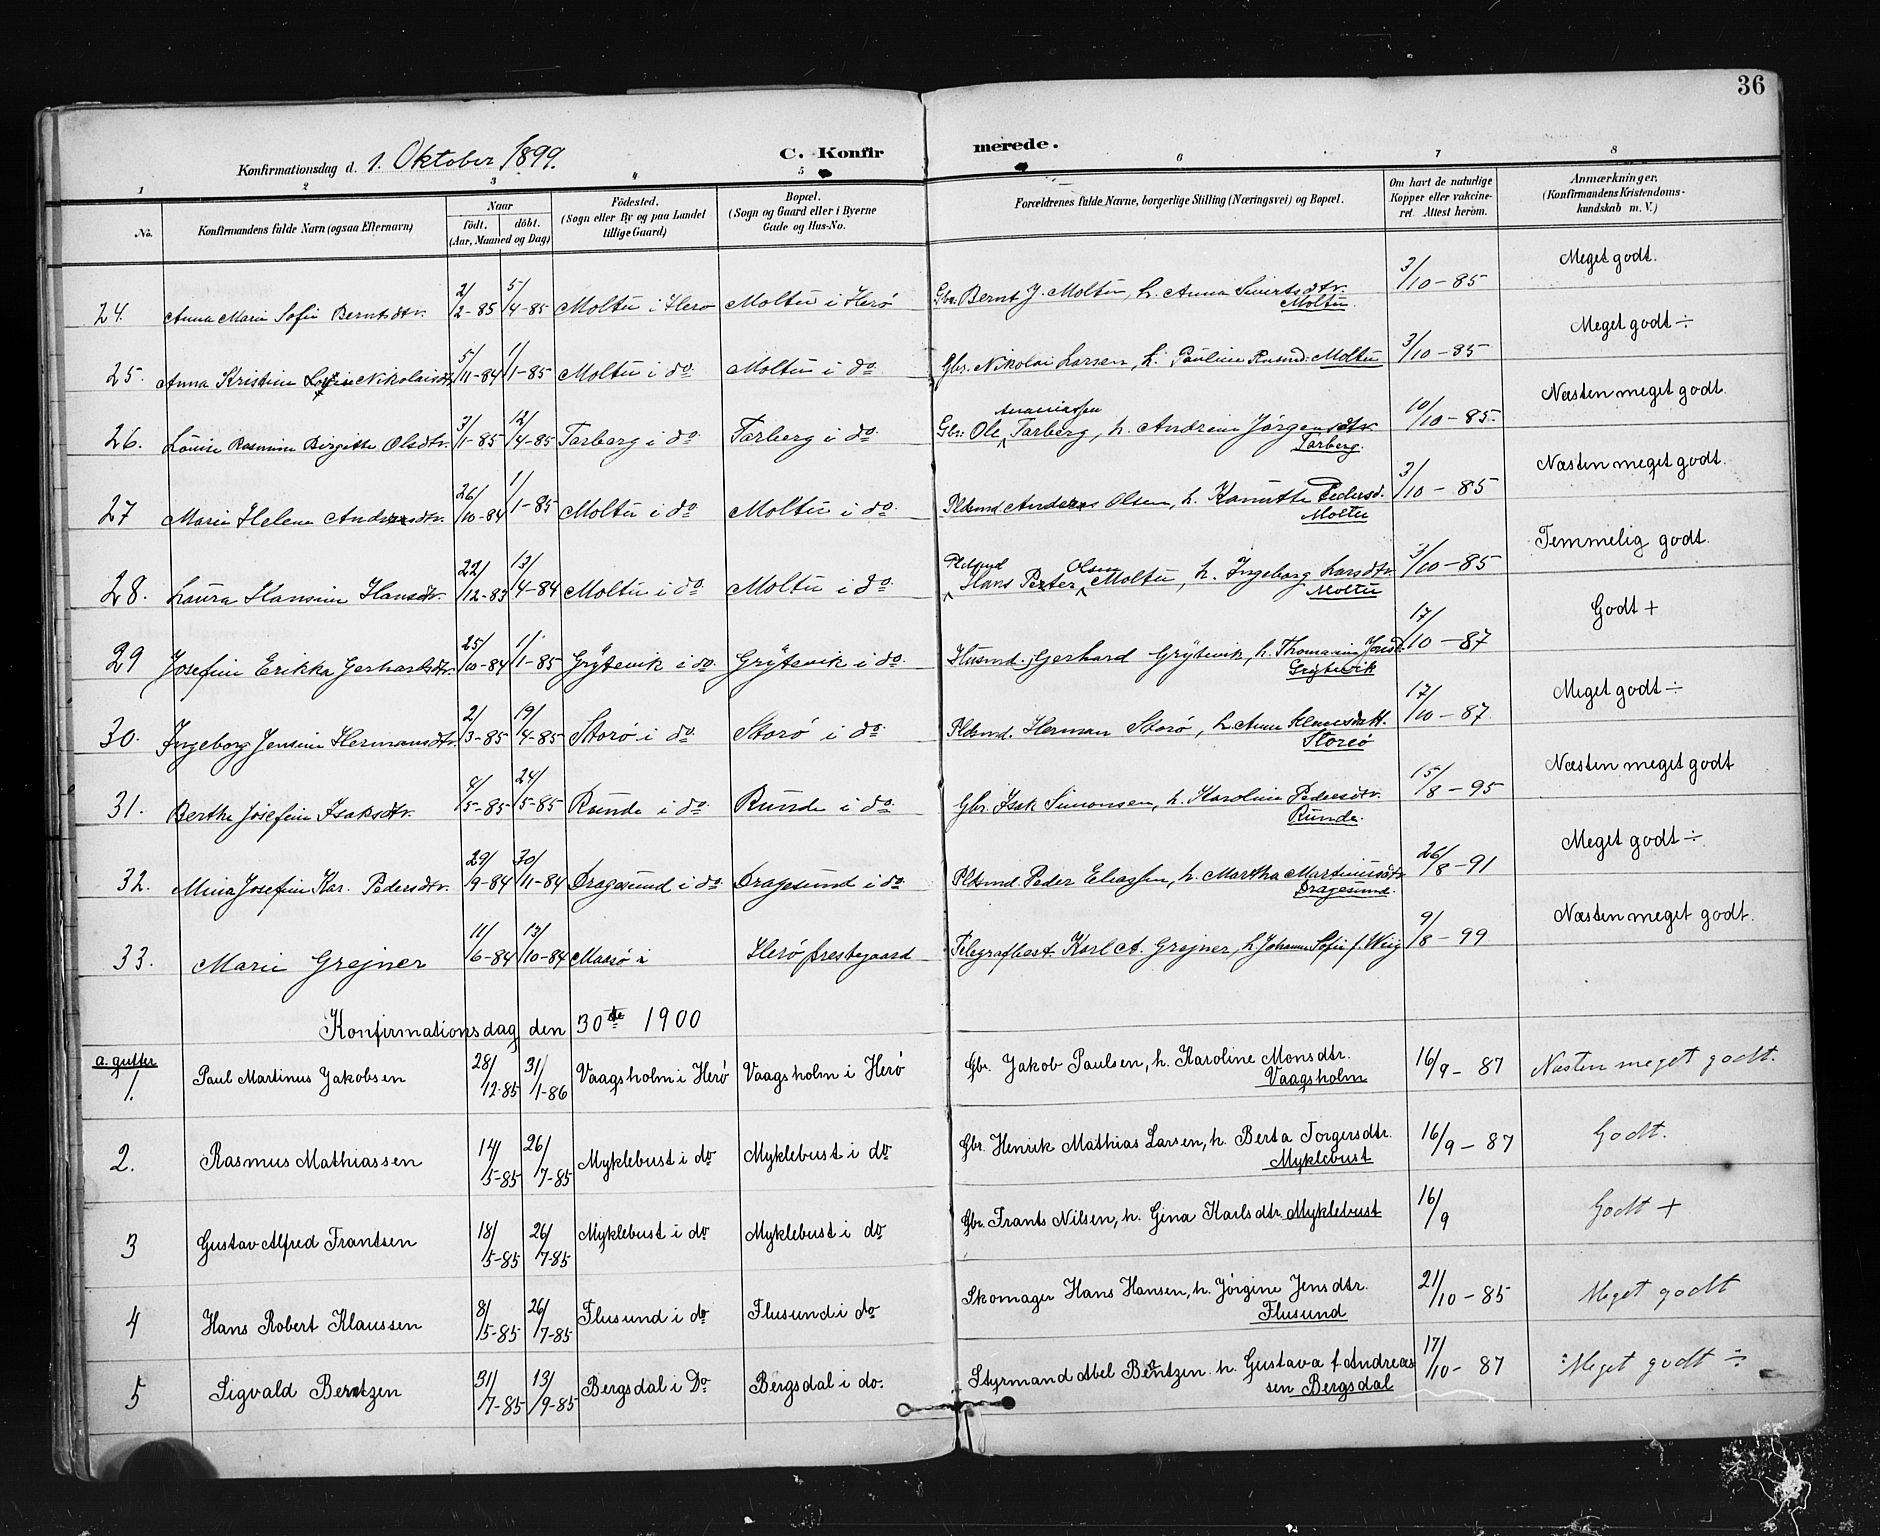 36
Konfirmationsdag d. 1. Oktober 1899.
C. Konfirmerede.
1 2 3 4 5 6 7 8
No.
Konfirmandens fulde Navn (ogsaa Efternavn)
Naar
født. døbt.
(Aar, Maaned og Dag)
Fødested.
(Sogn eller By og paa Landet
tillige Gaard)
Bopæl.
(Sogn og Gaard eller i Byerne
Gade og Hus-No.
Forældrenes fulde Navne, borgerlige Stilling (Næringsvei) og Bopæl.
Om havt de naturlige
Kopper eller vakcine-
ret. Attest herom.
Anmærkninger.
(Konfirmandens Kristendoms-
kundskab m. V.)
24. Anna Marie Sofie Berntsdtr. 2/2-85 5/4-85 Moltu i Herø Moltu i Herø Gbr. Bernt J. Moltu, h. Anna Sivertsdtr. Moltu 3/10-85 Meget godt.
25. Anna Kristine Nikolaisdtr 5/11-84 1/1-85 Moltu i do Moltu i do Gbr. Nikolai Larsen, h. Pauline Rasmd. Moltu 3/10-85 Meget godt ÷
26. Louise Rasmine Birgitte Olsdtr. 3/1-85 12/4-85 Tarberg i do Tarberg i do Gbr. Ole Ananiassen Tarberg, h. Andrine Jørgensdtr. Tarberg. 10/10-85. Næsten meget godt.
27 Marie Helene Andersdtr. 26/10-84 1/1-85 Moltu i do Moltu i do Pldsmd. Anders Olsen, h. Kanutte Pedersd. Moltu 3/10-85 Næsten meget godt.
28. Laura Hansine Hansdtr. 22/12-83 13/4-84 Moltu i do Moltu i do Pldsmd Hans Petter Olsen Moltu, h. Ingeborg Larsdtr. Moltu 3/10-85 Temmelig godt.
29 Josefine Erikka Gerhardsdtr. 25/10-84 1/1-85 Grytevik i do. Grytevik i do. Husmd. Gerhard Grytevik, h. Thomasine Jonsd. Grytevik 17/10-87 Godt +
30. Ingeborg Jensine Hermansdtr. 2/3-85 19/4-85 Storø i do Storø i do Pldsmd. Herman Storø, h. Anne Klausdatt. Storeø 17/10-87. Meget godt ÷
31. Berthe Josefine Isaksdtr. 4/5-85 24/5-85 Runde i do. Runde i do. Gbr. Isak Simonsen, h. Karoline Pedersdtr. Runde. 15/8-95 Næsten meget godt
32. Mina Josefine Kar. Pedersdtr. 29/9-84 30/11-84 Dragesund i do Dragesund i do Pldsmd. Peder Eliassen, h. Martha Martinusdtr. Dragesund. 26/8-91 Meget godt ÷
33. Marie Grejner 11/6-84 13/10-84 Maasø i Herø Prestegaard Telegrafbest. Karl A. Grejner, h. Johanne Sofie f. Wiig 9/8-99 Næsten meget godt.
Konfirmationsdag den 30te 1900
a. gutter
1. Paul Martinus Jakobsen 28/12-85 31/1-86 Vaagsholm i Herø Vaagsholm i Herø Gbr. Jakob Paulsen, h. Karoline Monsdtr. Vaagsholm 16/9-87 Næsten meget godt.
2. Rasmus Mathiassen 14/5-85 26/7-85 Myklebust i do Myklebust i do Gbr. Henrik Mathias Larsen, h. Berta Torgersdtr. Myklebust 16/9-87 Godt.
3 Gustav Alfred Frantsen 18/5-85 26/7-85 Myklebust i do Myklebust i do Gbr. Frants Nilsen, h. Gina Karlsdtr. Myklebust 16/9 Godt +
4 Hans Robert Klaussen 8/5-85 26/7-85 Flusund i do Flusund i do Skomager Hans Hansen, h. Jørgine Jensdtr. Flusund 21/10-85 Meget godt
5 Sigvald Berntzen 31/7-85 13/9-85 Bergsdal i Do Bergsdal i do. Styrmand Abel Bentzen h. Gustava f. Andreassen Bergsdal 17/10-87 Meget godt ÷